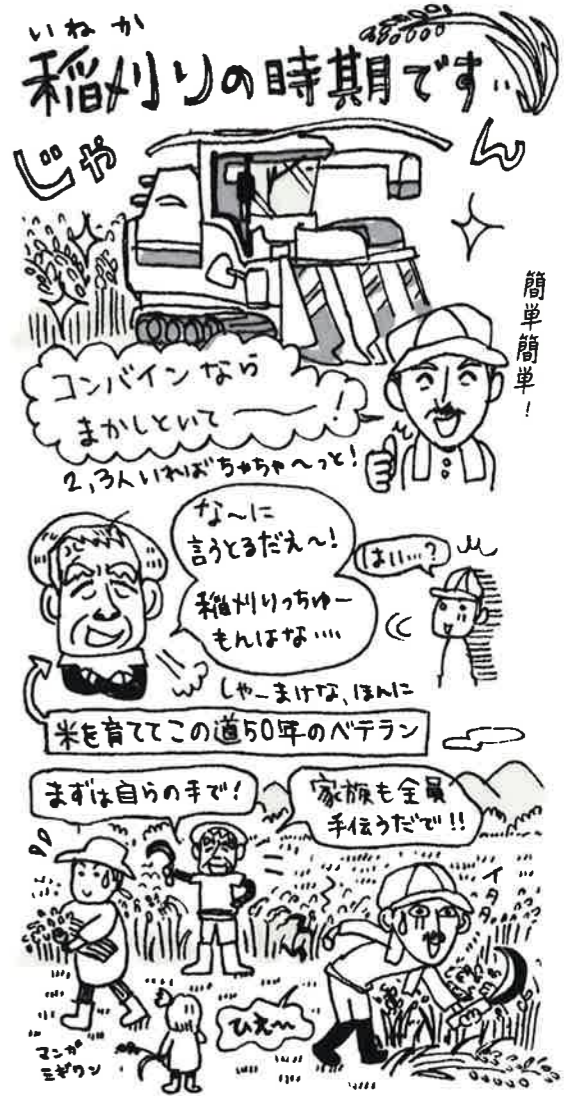 いねか
稲刈りの時期です…
じゃん
簡単簡単！
コンバインなら
まかしといてーー！
2,3人いればちゃちゃ〜っと！
な〜に
言うとるだえ〜！
稲刈りっちゅー
もんはな….
はい…？
しゃーまけな、ほんに
米を育ててこの道50年のベテラン
まずは自らの手で！
家族も全員
手伝うだで!!
イタタ
ひえ〜
マンガ